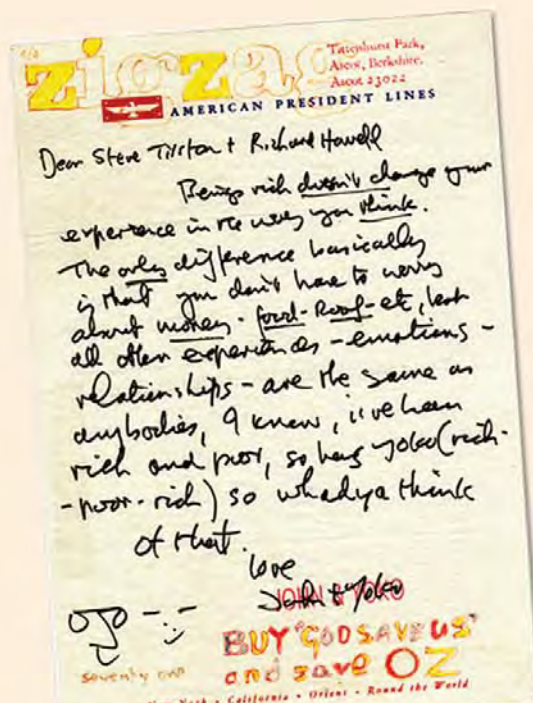 zigzag
Tittenhurst Park,
Ascot, Berkshire.
Ascot 23022
AMERICAN PRESIDENT LINES
Dear Steve Tilston + Richard Howell
Being rich doesn't change your
experience in the way you think.
The only difference basically
is that you don't have to worry
about money - food - Roof - etc, but
all other experiences - emotions -
relationships - are the same as
anybodies, I know, i've been
rich and poor, so has yoko (rich-
-poor-rich) so whadya think
of that.
love
John & Yoko
JOHN & YOKO
BUY "GOD SAVE US"
seventy one
and save OZ
New York • California • Orient • Round the World